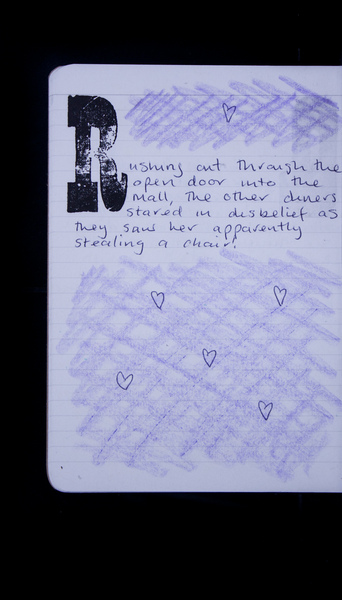 Rushing out through the
open door into the
mall, the other diners
stared in disbelief as
they saw her apparently
stealing a chair!